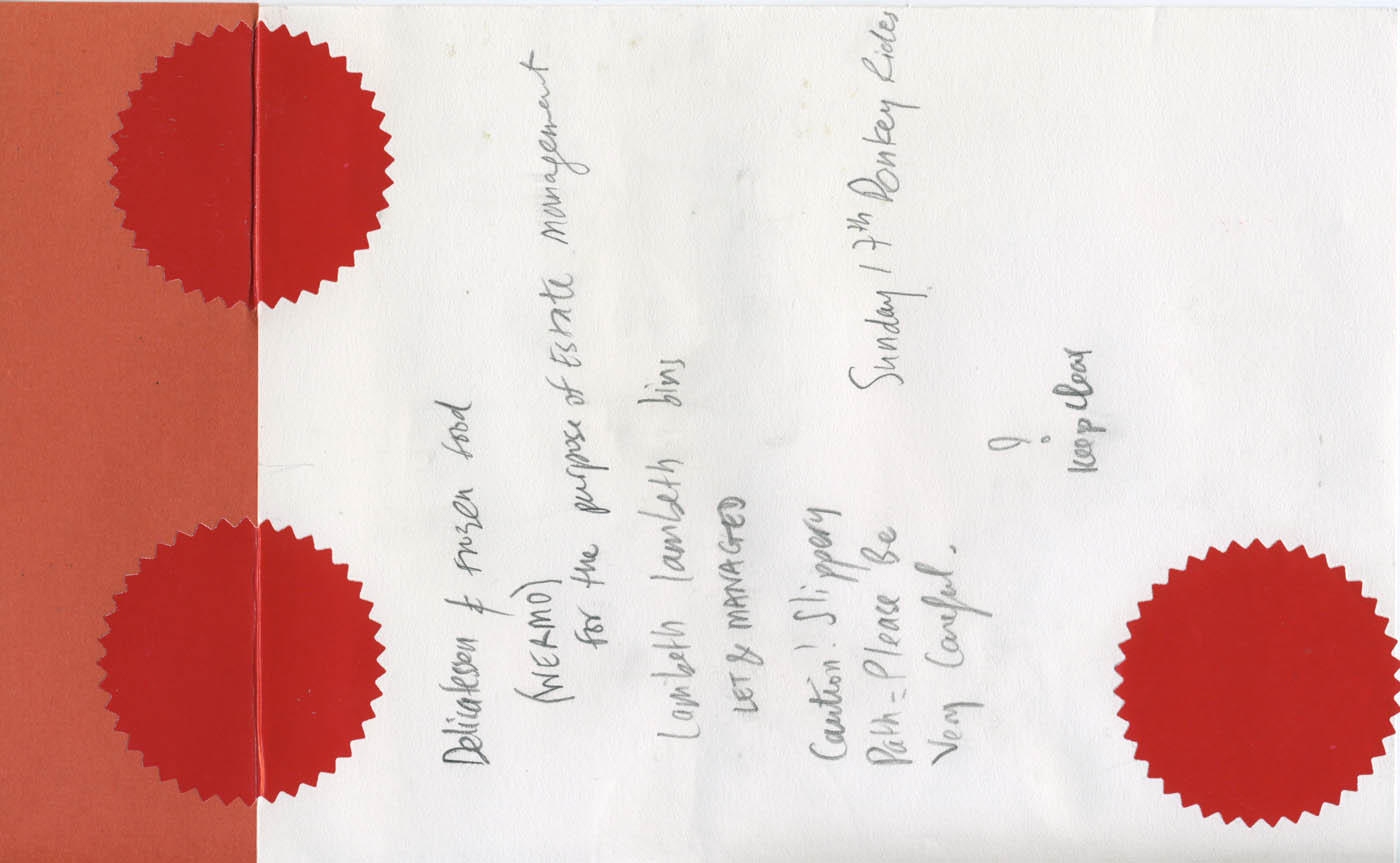 Delicatessen & frozen food
(WERMO)
for the purpose of Estate Management
Lambeth lambeth bins
LET & MANAGED
Caution! Slippery
Path = Please Be
Very Careful.
Sunday 17th Donkey Rides
keep clear